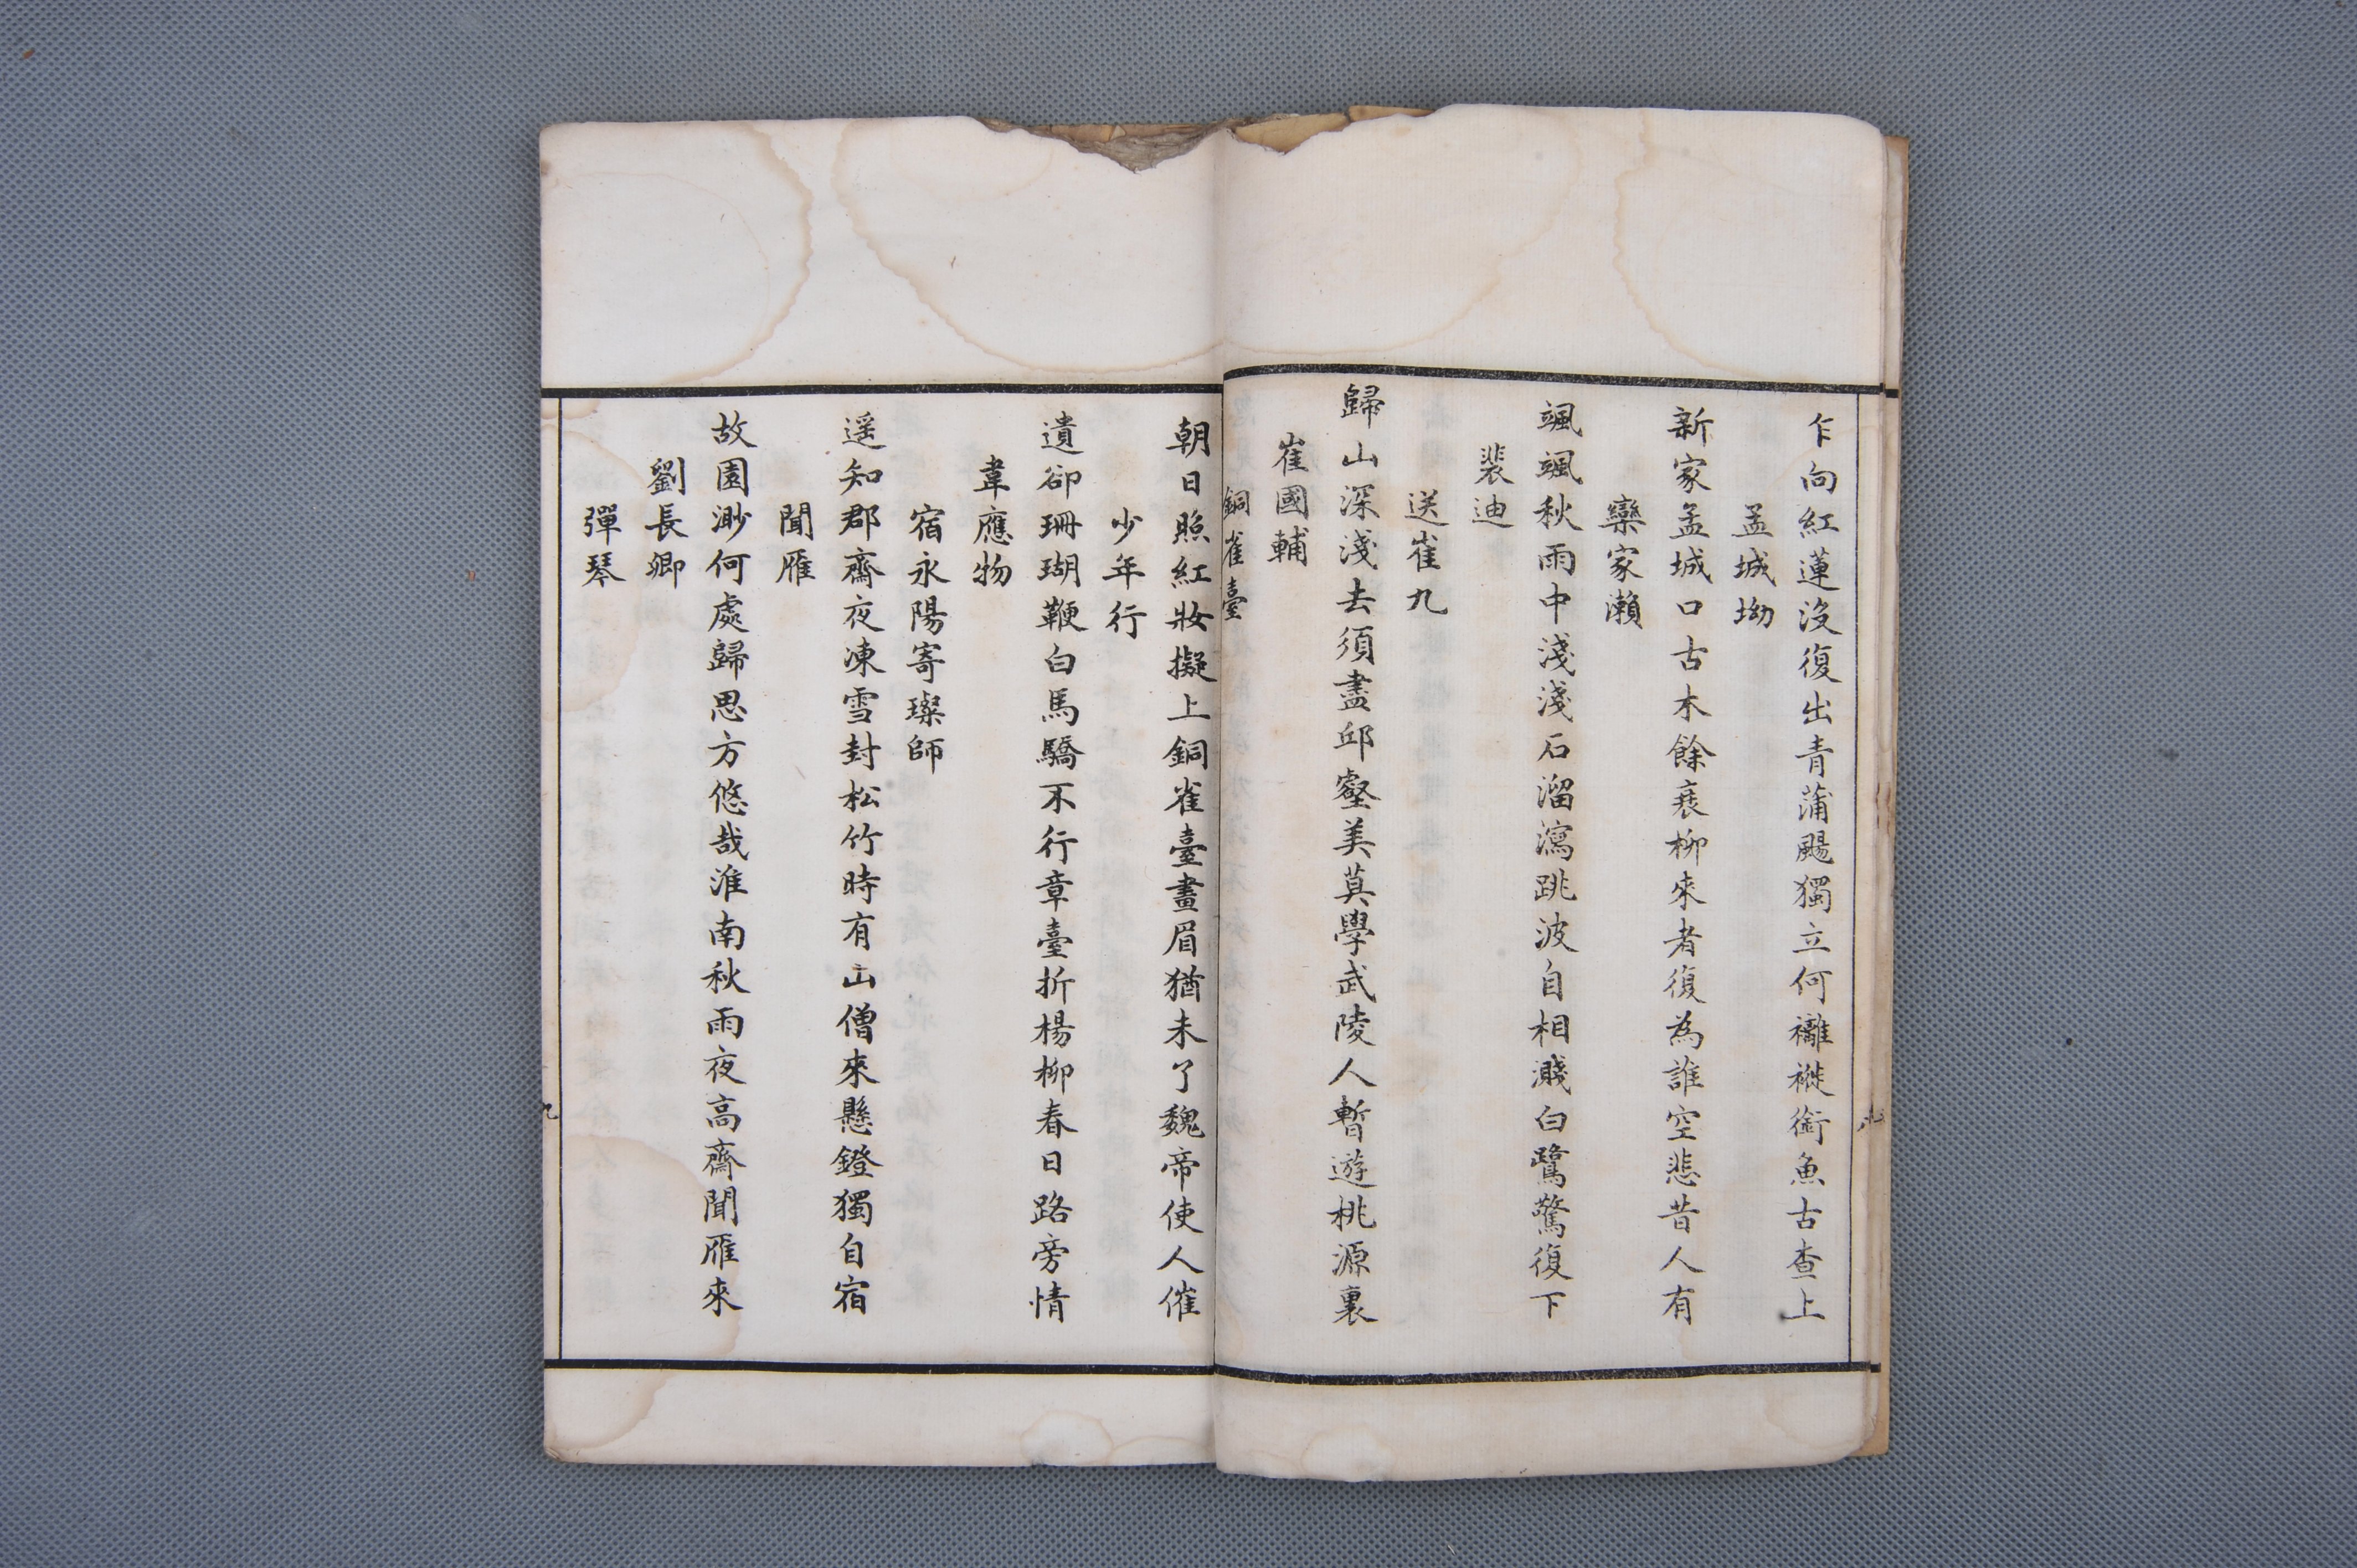 乍向紅蓮沒復出青蒲颺獨立何褵褷銜魚古查上
孟城坳
新家孟城口古木餘衰柳來者復為誰空悲昔人有
欒家瀨
颯颯秋雨中淺淺石溜瀉跳波自相濺白鷺驚復下
裴迪
送崔九
歸山深淺去須盡邱壑美莫學武陵人暫遊桃源裏
崔國輔
銅雀臺
朝日照紅妝擬上銅雀臺畫眉猶未了魏帝使人催
少年行
遺卻珊瑚鞭白馬驕不行章臺折楊柳春日路旁情
韋應物
宿永陽寄璨師
遥知郡齋夜凍雪封松竹時有山僧來懸鐙獨自宿
聞雁
故園渺何處歸思方悠哉淮南秋雨夜高齋聞雁來
劉長卿
彈琴
九